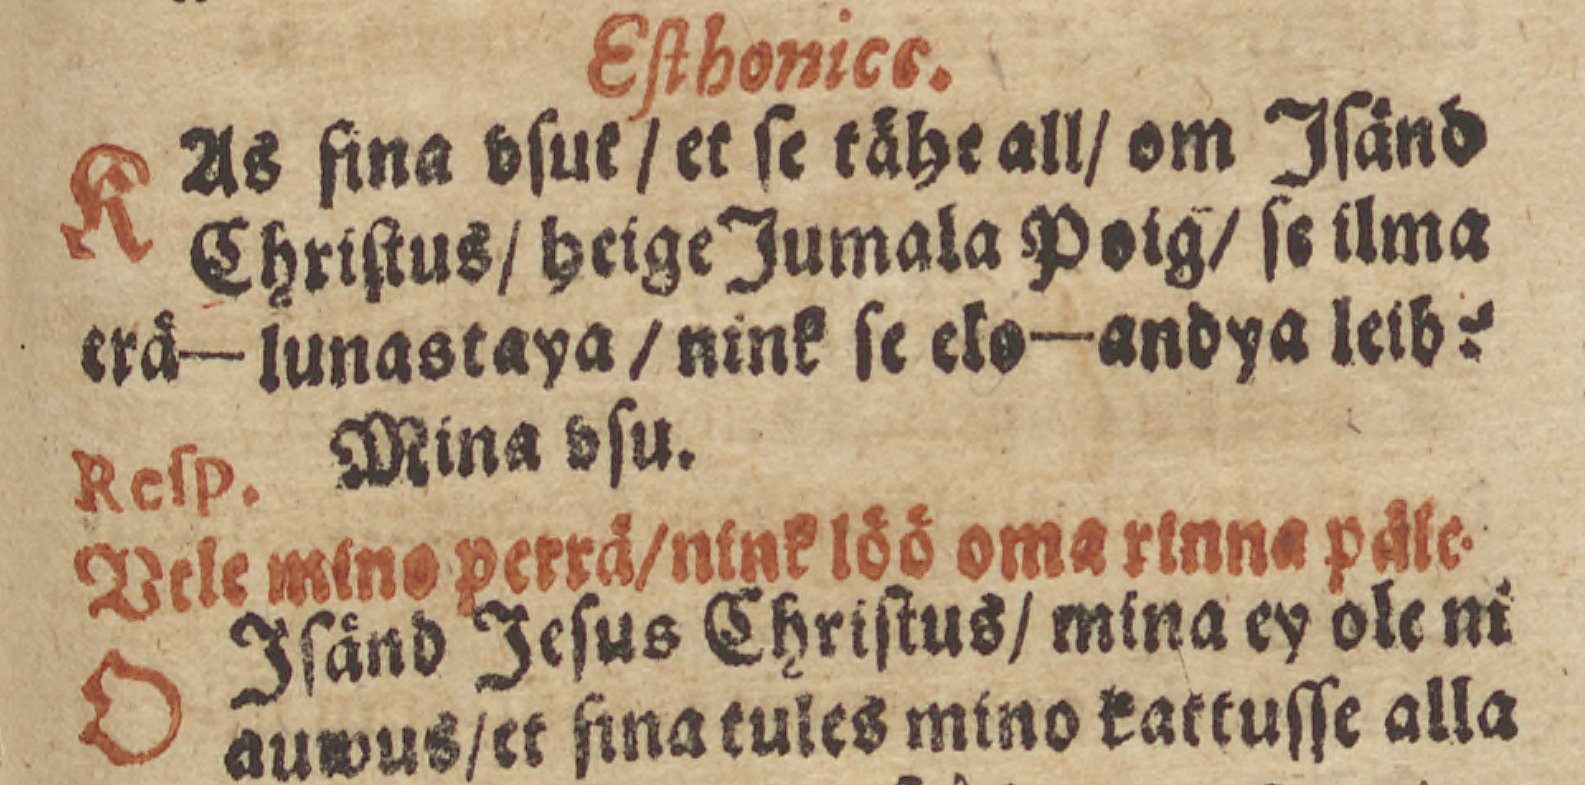 Eſthonice.
KAs ſina vſut / et ſe tåht all / om Iſånd
Chriſtus / heige Jumala Poig / ſe ilma
erå—lunastaya / nink ſe elo—andya leib?
Resp. Mina vſu.
Vele mino perrå / nink löö oma rinna påle.
O Iſånd Jeſus Chriſtus / mina ey ole ni
auwus / et ſina tules mino kattuſſe alla